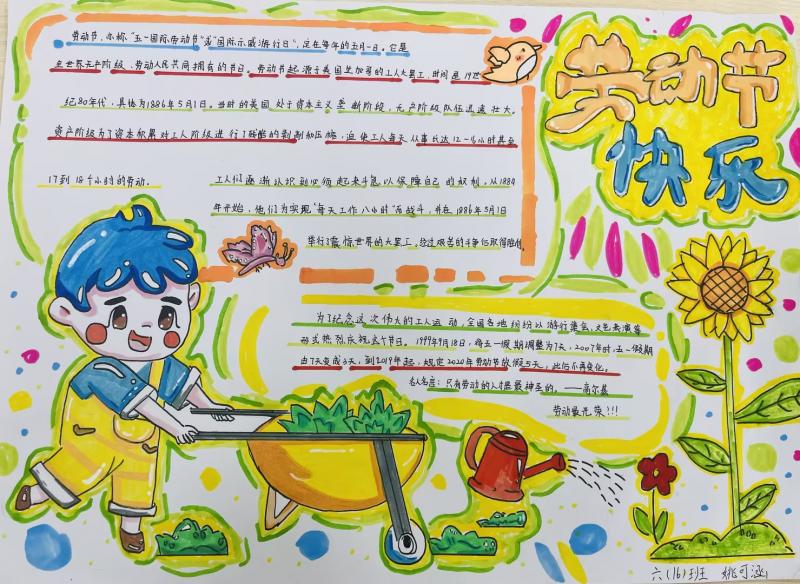 劳动节，亦称"五一国际劳动节"或"国际示威游行日"，定在每年的五月一日。它是
全世界无产阶级、劳动人民共同拥有的节日。劳动节起源于美国芝加哥的工人大罢工，时间是19世
纪80年代，具体为1886年5月1日。当时的美国处于资本主义 新阶段，无产阶级队伍迅速壮大。
资产阶级为了资本积累对工人阶级进行了残酷的剥削和压榨，迫使工人每天从事长达12-14小时甚至
17到18个小时的劳动。
工人们逐渐认识到必须起来斗争以保障自己的权利。从1884
年开始，他们为实现"每天工作八小时"而战斗，并在1886年5月1日
举行了震惊世界的大罢工，经过艰苦的斗争后取得胜利
为了纪念这次伟大的工人运动，全国各地纷纷以游行集会、文艺表演等
形式热烈庆祝这个节日。1999年9月18日，将五一假期调整为7天，2007年时，五一假期
由7天变成3天，到2019年起，规定2020年劳动节放假5天，此后不再变化。
名人名言：只有劳动的人才是最神圣的。——高尔基
劳动最光荣！！！
劳动节
快乐
六(16)班 姚可涵